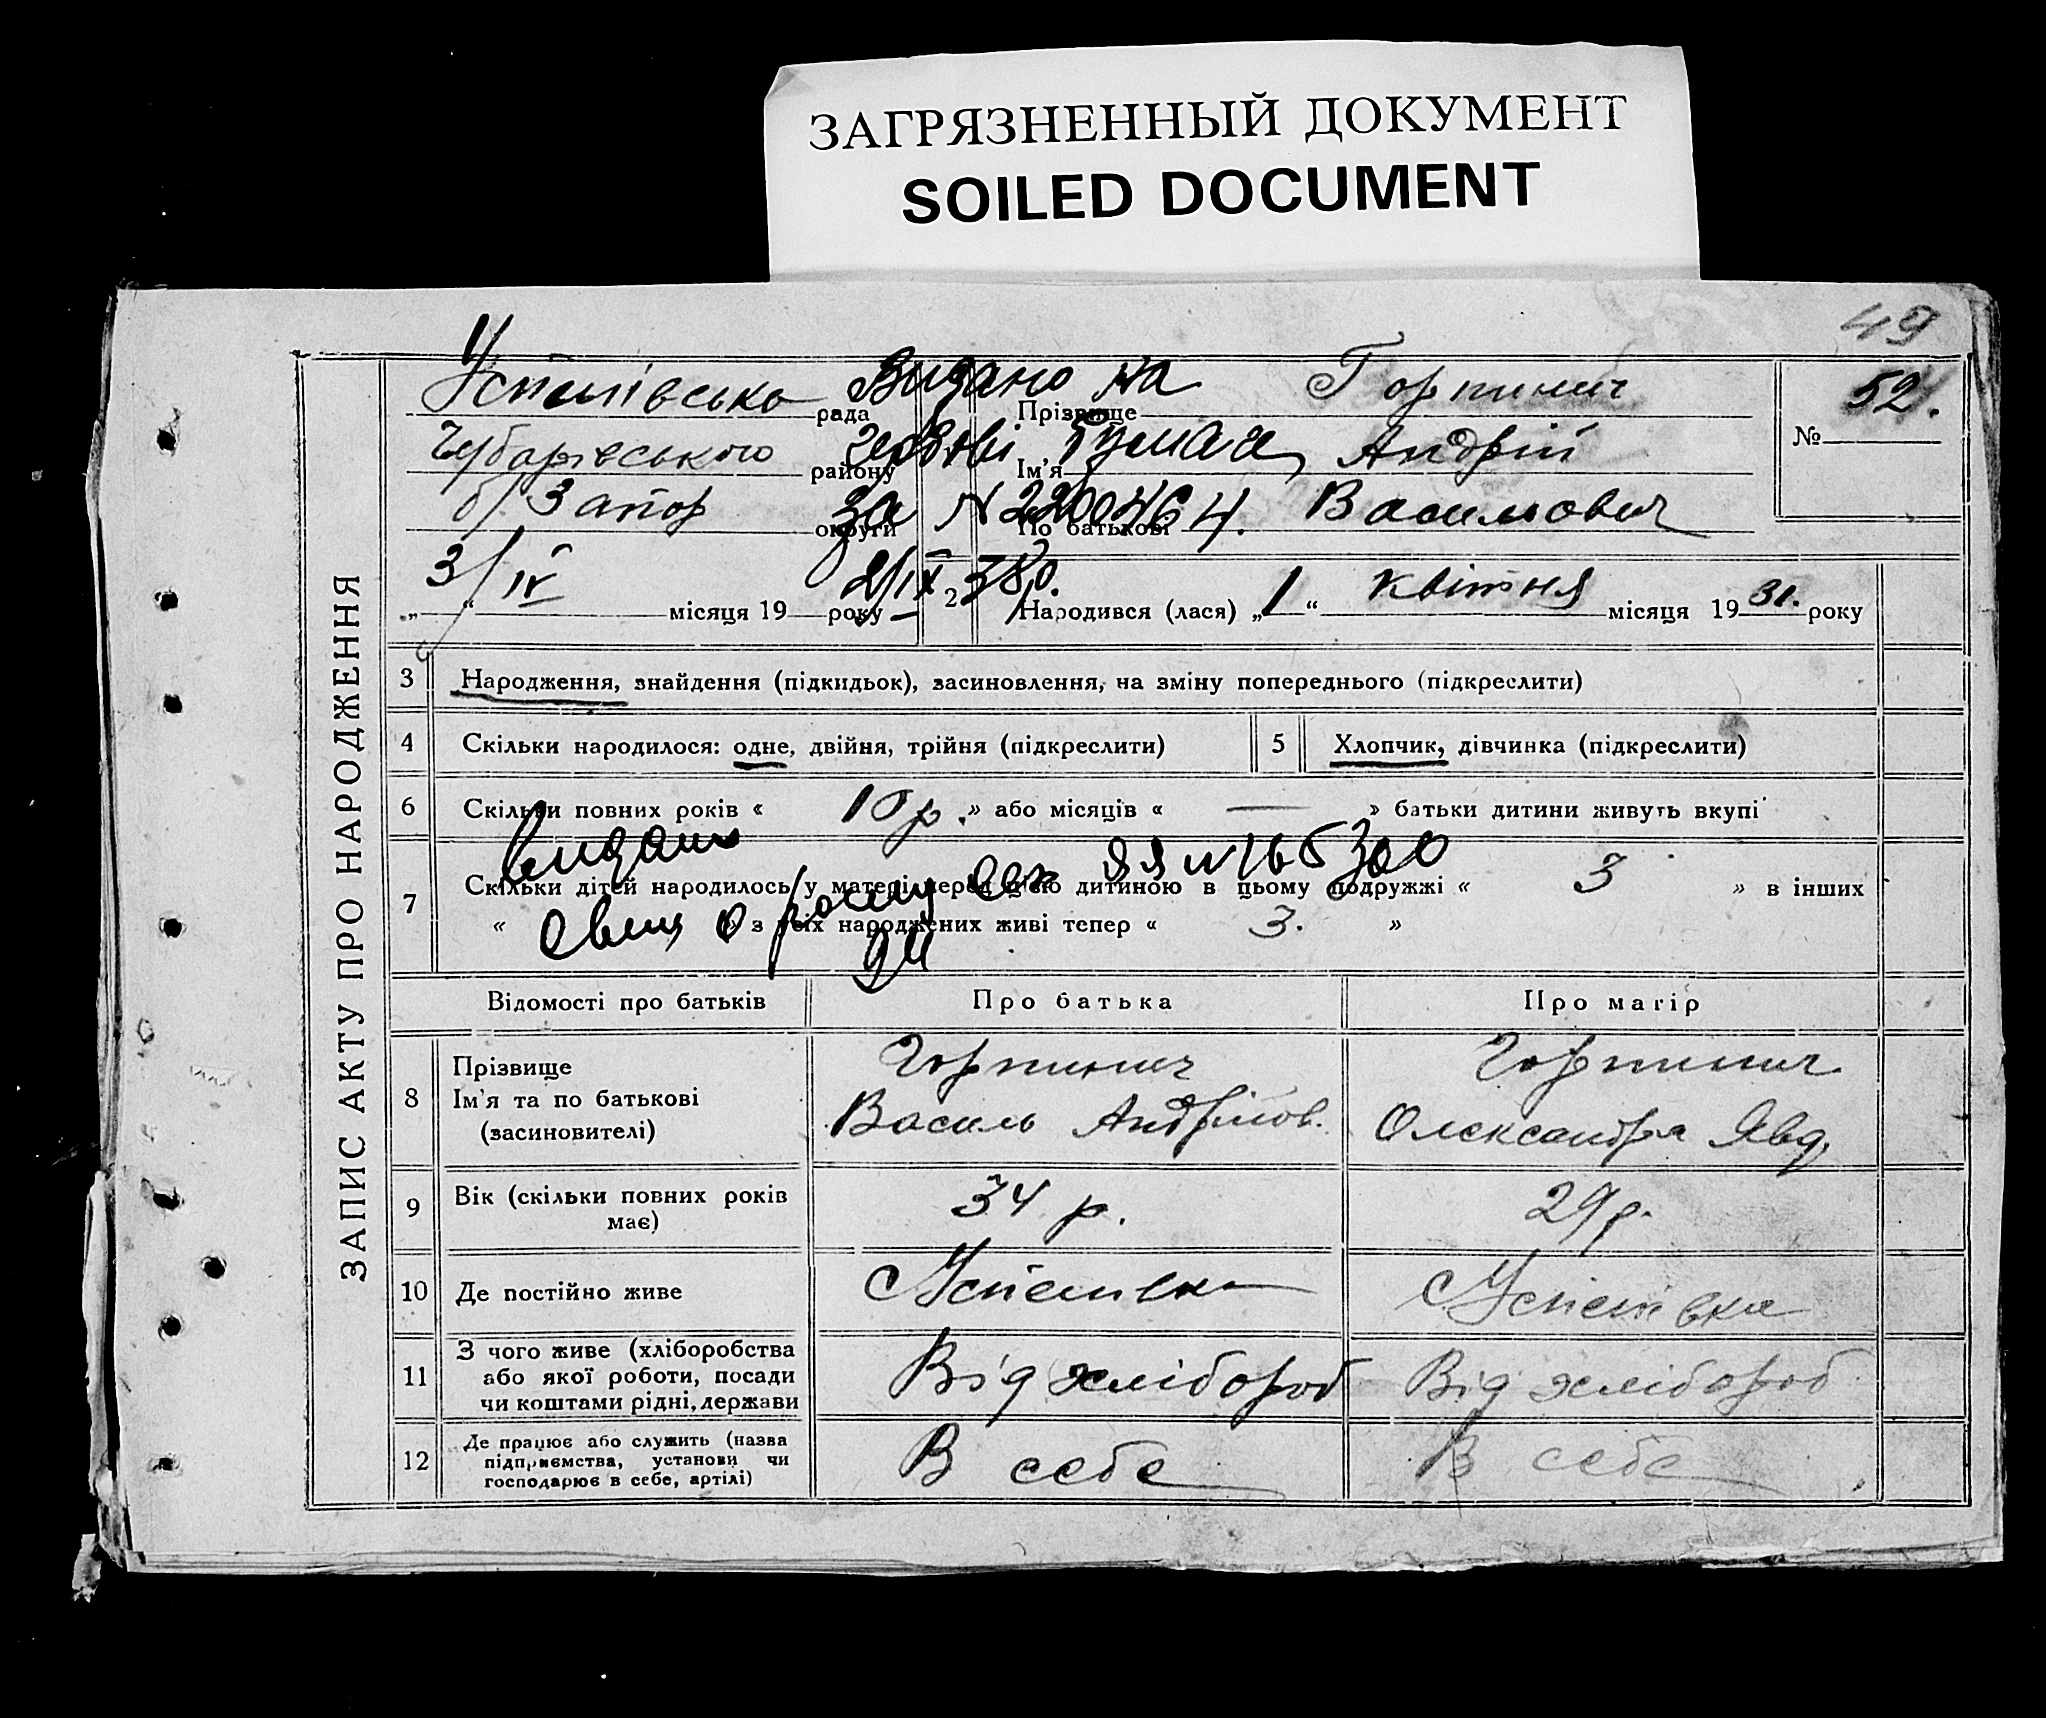 ЗАГРЯЗНЕННЫЙ ДОКУМЕНТ
SOILED DOCUMENT
49
ЗАПИС АКТУ ПРО НАРОДЖЕННЯ
рада Видано на Прізвище Горпинич № 52.
Чубарівського району Ім'я Андрій
б/Запор округи за N 220464. По батькові Васильович
3/IV місяця 19 року 2/IX 38р. 2 Народився (лася) „1“ квітня місяця 1931. року
3 Народження, знайдення (підкидьок), засиновлення, на зміну попереднього (підкреслити)
4 Скільки народилося: одне, двійня, трійня (підкреслити) 5 Хлопчик, дівчинка (підкреслити)
6 Скільки повних років « 10 р. » або місяців « — » батьки дитини живуть вкупі
видано
7 Скільки дітей народилось у матері перед цією дитиною в цьому подружжі « 3 » в інших
« » з усіх народжених живі тепер « 3. »
Відомості про батьків Про батька Про матір
8 Прізвище Ім'я та по батькові (засиновителі) Горпинич Василь Андрійов. Горпинич Олександра Явд.
9 Вік (скільки повних років має) 34 р. 29 р.
10 Де постійно живе с Успенівка с Успенівка
11 З чого живе (хліборобства або якої роботи, посади чи коштами рідні, держави Від хлібороб Від хлібороб
12 Де працює або служить (назва підприємства, установи чи господарює в себе, артілі) В себе В себе